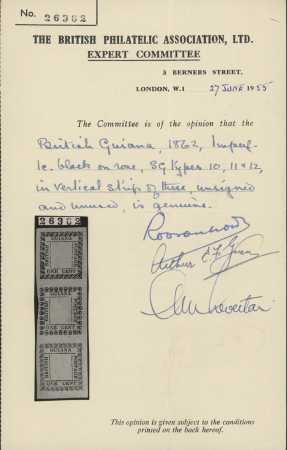 No. 26362
THE BRITISH PHILATELIC ASSOCIATION, LTD.
EXPERT COMMITTEE
3 BERNERS STREET,
LONDON, W.1 27 JUNE 1955
The Committee is of the opinion that the
British Guiana, 1862, Imperf
1c. black on rose, SG types 10, 11 & 12,
in vertical strip of three, unsigned
and unused, is genuine.
26362
GUIANA
BRITISH
POSTAGE
ONE CENT
GUIANA
BRITISH
POSTAGE
ONE CENT
GUIANA
BRITISH
POSTAGE
ONE CENT
Arthur
This opinion is given subject to the conditions
printed on the back hereof.